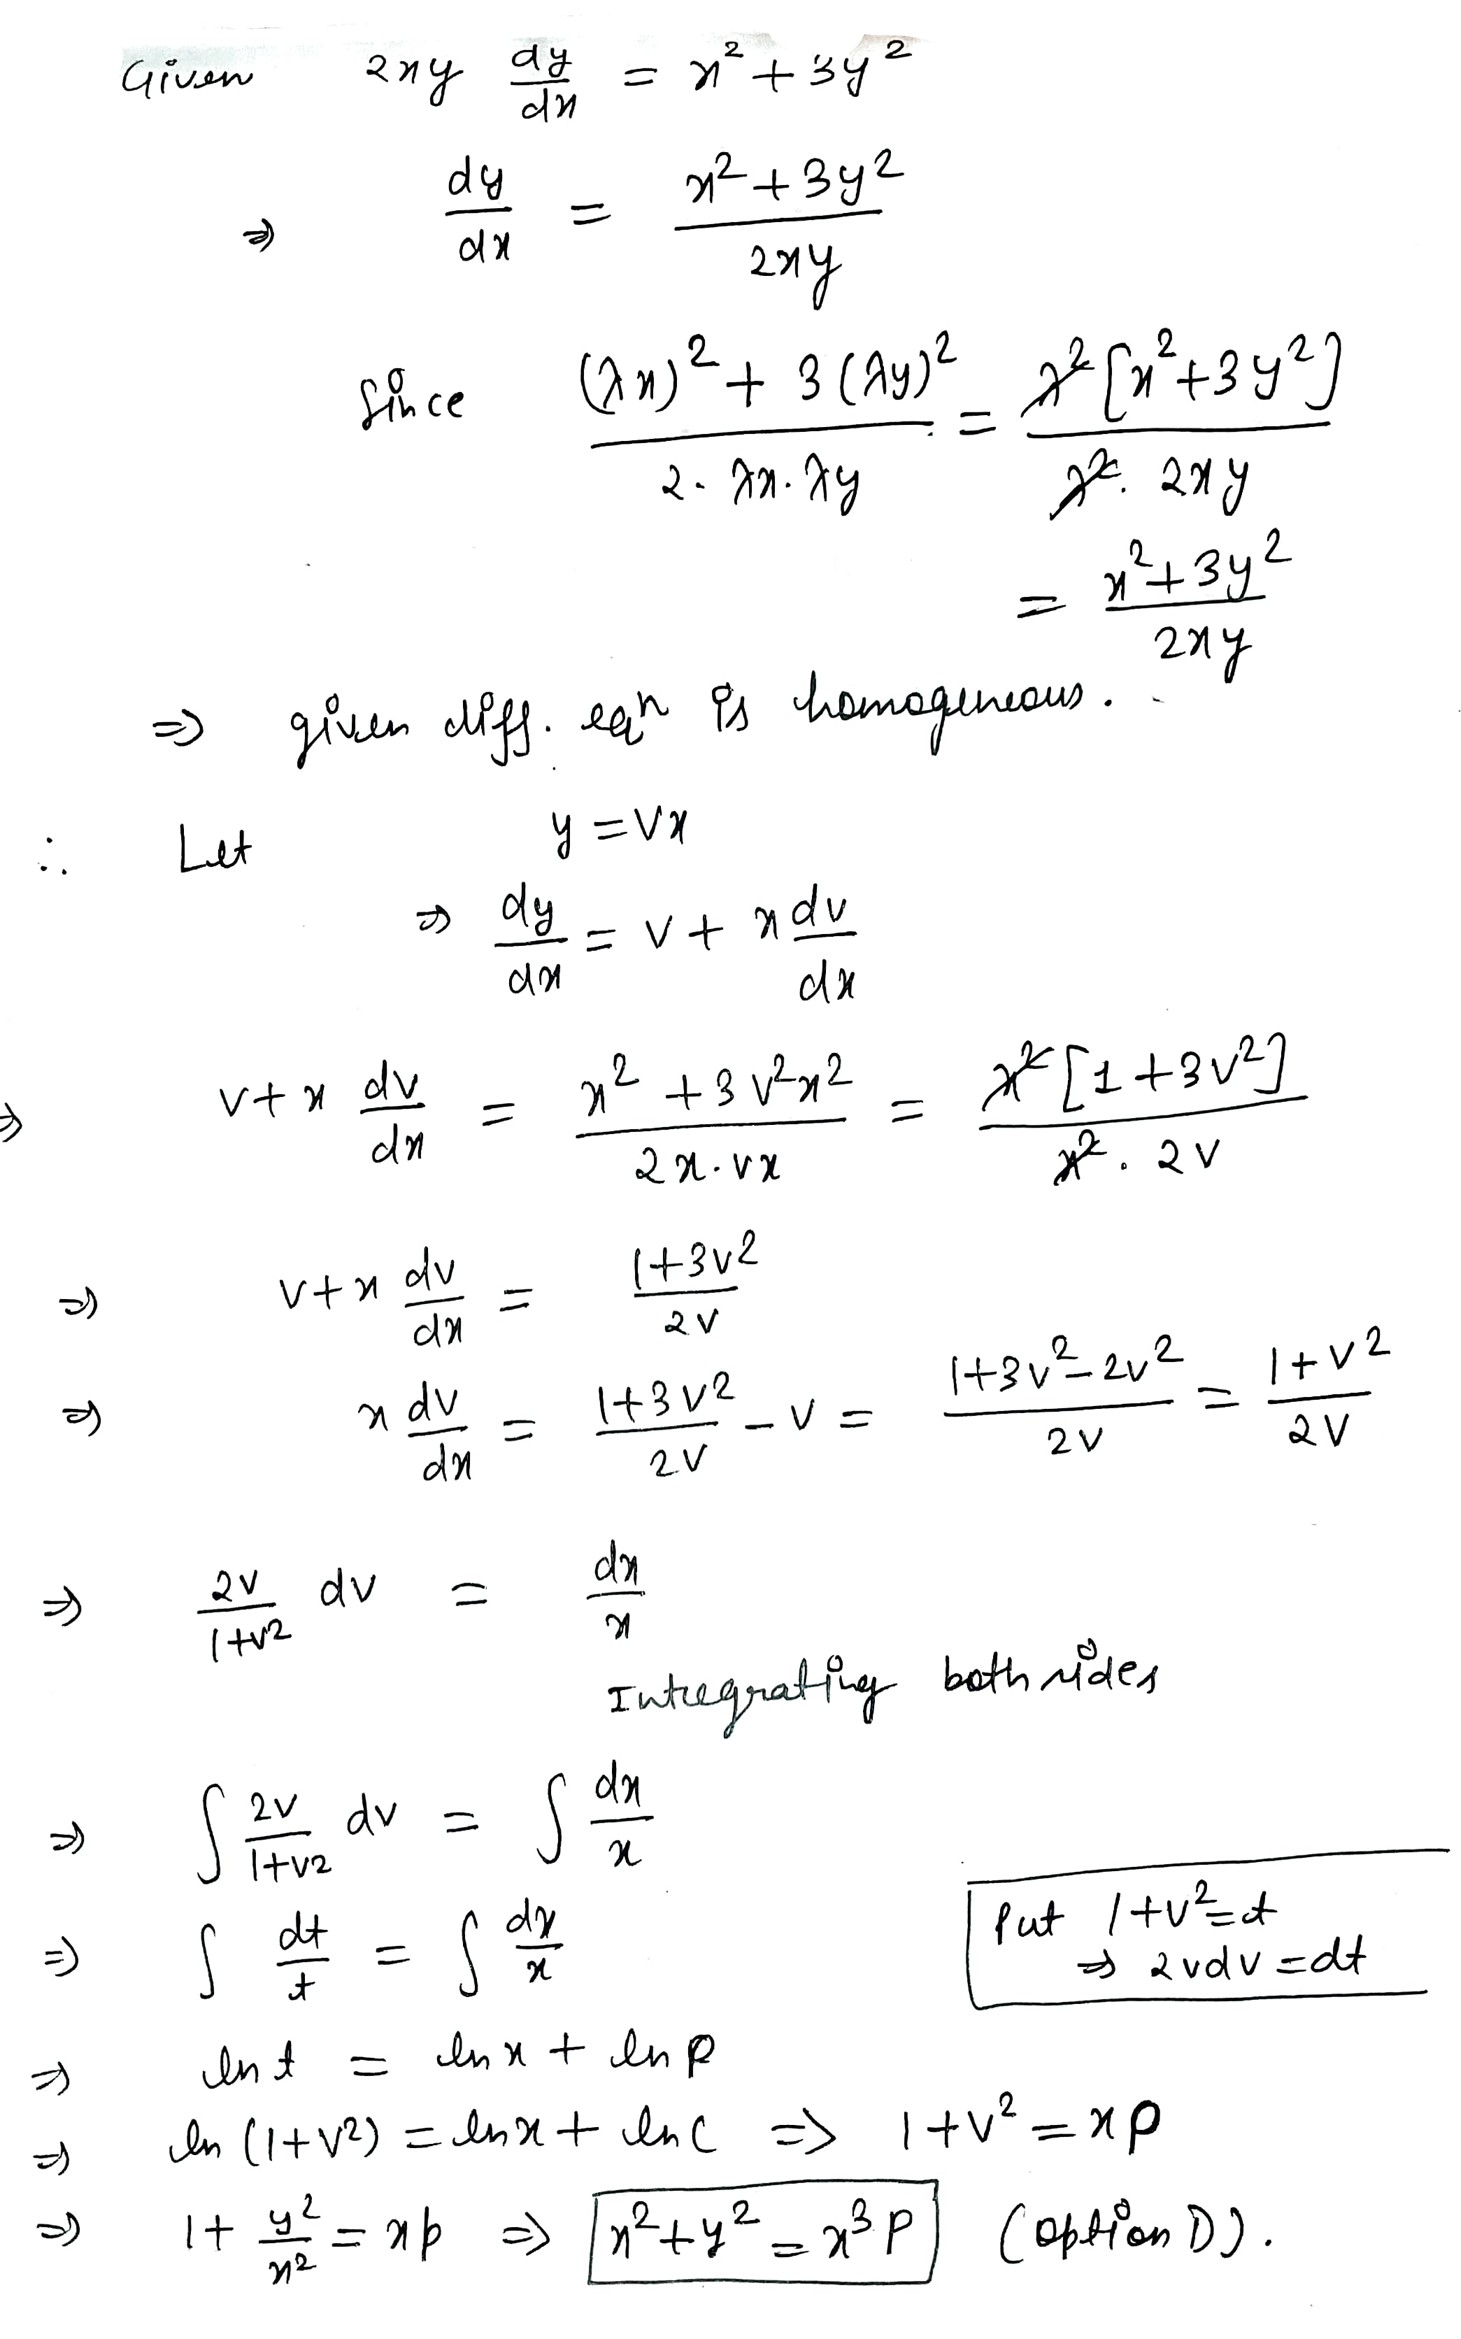 Given 2xy dy/dx = x² + 3y²
⇒ dy/dx = (x² + 3y²)/(2xy)
Since ((λx)² + 3(λy)²)/(2·λx·λy) = (λ²[x² + 3y²])/(λ²·2xy)
= (x² + 3y²)/(2xy)
⇒ given diff. eqn is homogeneous.
∴ Let y = vx
⇒ dy/dx = v + x dv/dx
⇒ v + x dv/dx = (x² + 3v²x²)/(2x·vx) = (x²[1 + 3v²])/(x²·2v)
⇒ v + x dv/dx = (1 + 3v²)/(2v)
⇒ x dv/dx = (1 + 3v²)/(2v) - v = (1 + 3v² - 2v²)/(2v) = (1 + v²)/(2v)
⇒ 2v/(1+v²) dv = dx/x
Integrating both sides
⇒ ∫ 2v/(1+v²) dv = ∫ dx/x
Put 1+v² = t
⇒ 2vdv = dt
⇒ ∫ dt/t = ∫ dx/x
⇒ ln t = ln x + ln p
⇒ ln (1+v²) = ln x + ln c ⇒ 1+v² = xp
⇒ 1 + y²/x² = xp ⇒ x² + y² = x³p (option D).